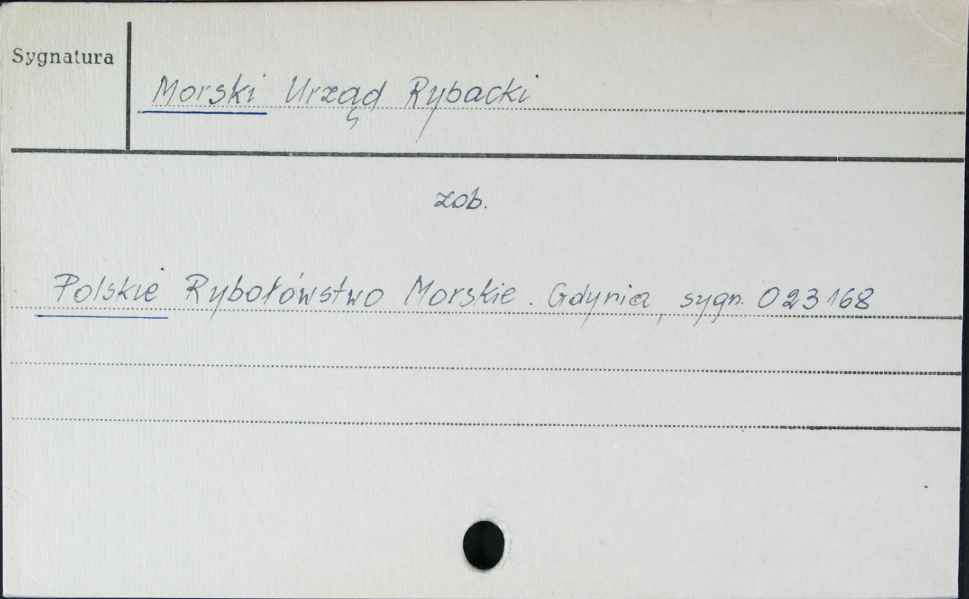 Sygnatura
Morski Urząd Rybacki
zob.
Polskie Rybołówstwo Morskie. Gdynia, sygn. 023168